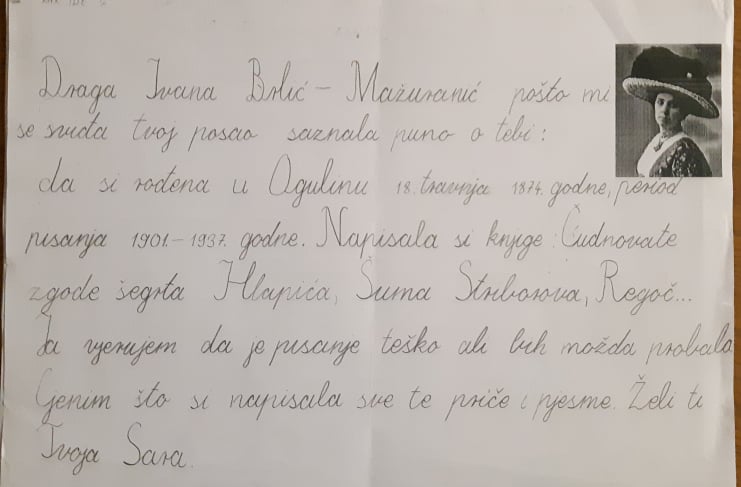 Draga Ivana Brlić – Mažuranić pošto mi
se sviđa tvoj posao saznala puno o tebi:
da si rođena u Ogulinu 18. travnja 1874. godne, period
pisanja 1901.–1937. godne. Napisala si knjige: Čudnovate
zgode šegrta Hlapića, Šuma Striborova, Regoč...
Ja vjerujem da je pisanje teško ali bih možda probala
Cjenim što si napisala sve te priče i pjesme. Želi ti
Tvoja Sara.